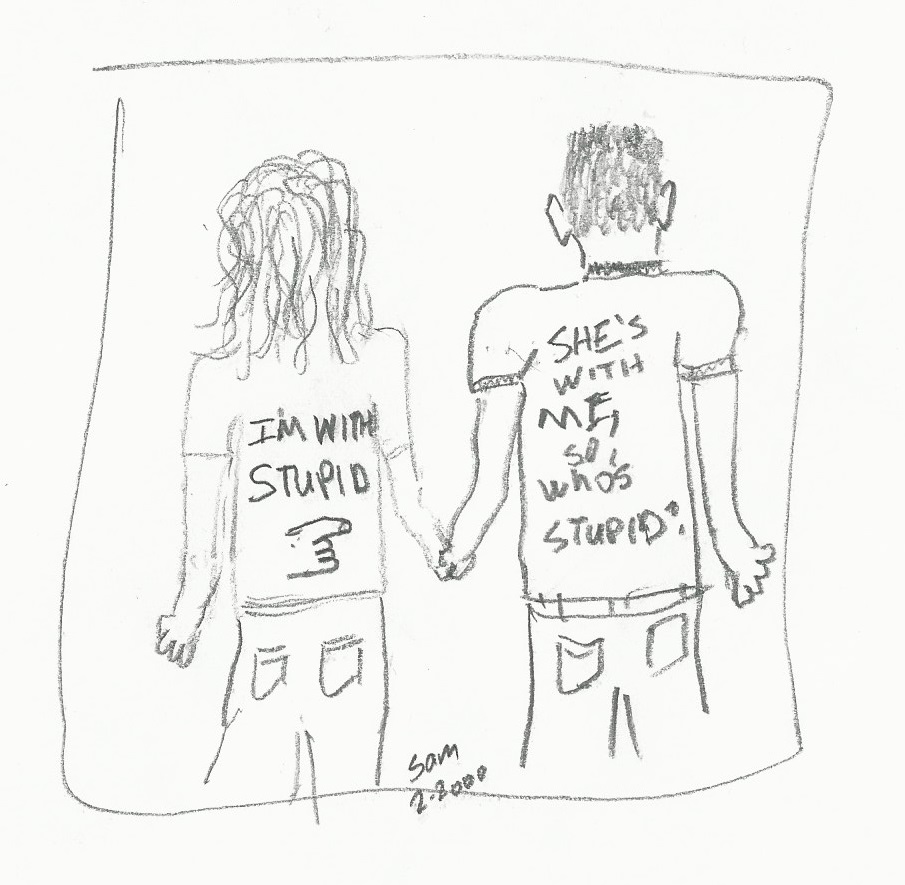 I'M WITH
STUPID
SHE'S
WITH
ME,
SO,
WHO'S
STUPID?
Sam
2-2000